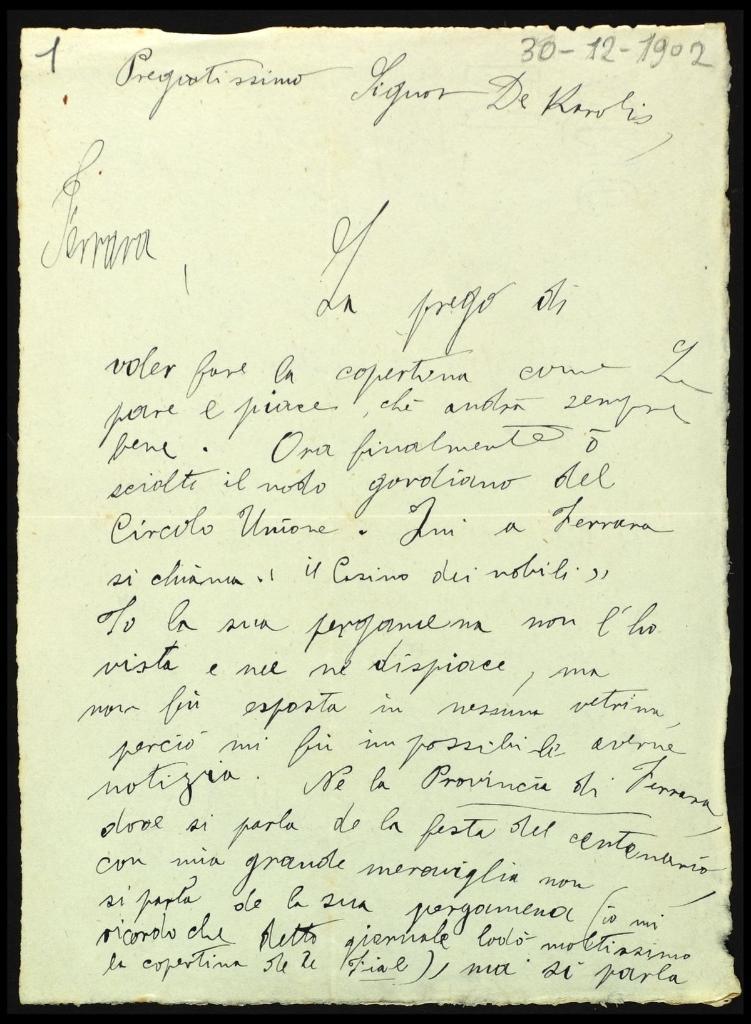 1
30-12-1902
Pregiatissimo Signor De Karolis,
Ferrara,
La prego di
voler fare la copertina come Le
pare e piace, chè andrà sempre
bene. Ora finalmente ò
sciolto il nodo gordiano del
Circolo Unione. Qui a Ferrara
si chiama " il Casino dei nobili "
Io la sua pergamena non l'ho
vista e me ne dispiace, ma
non fu esposta in nessuna vetrina,
perciò mi fu impossibile averne
notizia. Ne la Provincia di Ferrara,
dove si parla de la festa del centenario,
con mia grande meraviglia non
si parla de la sua pergamena (io mi
ricordo che detto giornale lodò moltissimo
la copertina de le Fiale), ma si parla